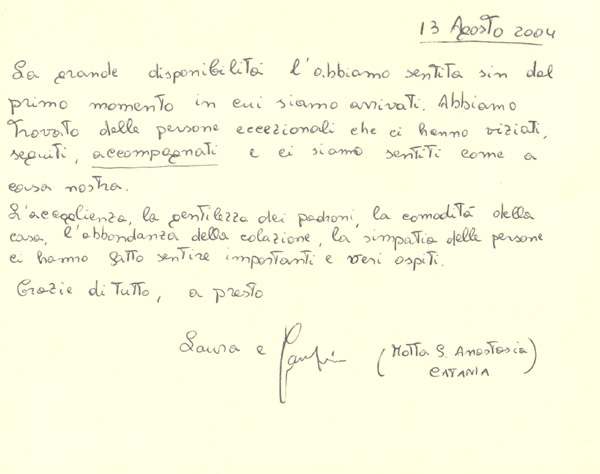 13 Agosto 2004
La grande disponibilità l'abbiamo sentita sin dal
primo momento in cui siamo arrivati. Abbiamo
trovato delle persone eccezionali che ci hanno viziati,
seguiti, accompagnati e ci siamo sentiti come a
casa nostra.
L'accoglienza, la gentilezza dei padroni, la comodità della
casa, l'abbondanza della colazione, la simpatia delle persone
ci hanno fatto sentire importanti e veri ospiti.
Grazie di tutto, a presto
Laura e (Motta S. Anastasia)
CATANIA